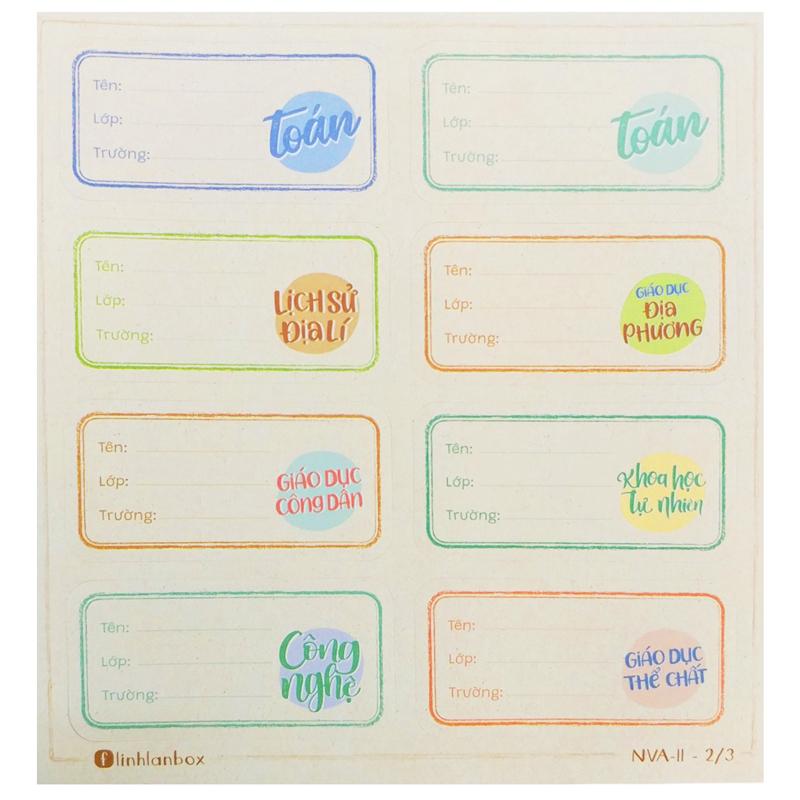 Tên:
Lớp:
Trường:
Toán
Tên:
Lớp:
Trường:
Toán
Tên:
Lớp:
Trường:
LỊCH SỬ
ĐỊA LÍ
Tên:
Lớp:
Trường:
GIÁO DỤC
ĐỊA
PHƯƠNG
Tên:
Lớp:
Trường:
GIÁO DỤC
CÔNG DÂN
Tên:
Lớp:
Trường:
Khoa học
Tự nhiên
Tên:
Lớp:
Trường:
Công
nghệ
Tên:
Lớp:
Trường:
GIÁO DỤC
THỂ CHẤT
linhlanbox
NVA-II - 2/3